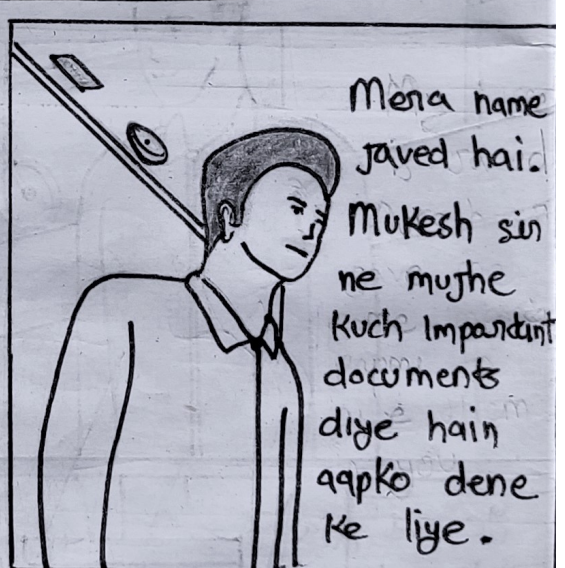 Mera name
Javed hai.
Mukesh sir
ne mujhe
kuch Important
documents
diye hain
aapko dene
ke liye.